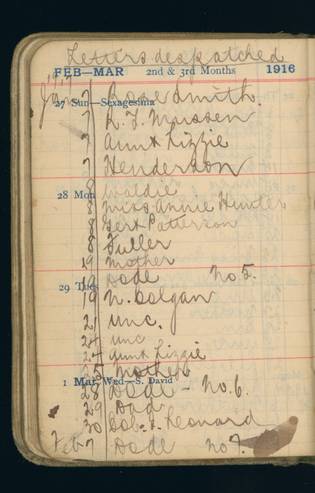 Letters despatched
FEB–MAR 2nd & 3rd Months 1916
1917
Jan 7 Rose Smith.
27 Sun—Sexagesima
7 L. J. Mussen
7 Aunt Lizzie
7 Henderson
8 Waldie
28 Mon
8 Miss Annie Hunter
8 Gert Patterson
8 Fuller
19 Mother
19 Dode No 5.
29 Tues
19 N. Colgan
21 Unc.
24 Unc
24 Aunt Lizzie
25 Mother
1 Mar, Wed—S. David
28 Dode - No. 6.
29 Dad
30 Bob & Leonard
Feb 7 Dode No 7.